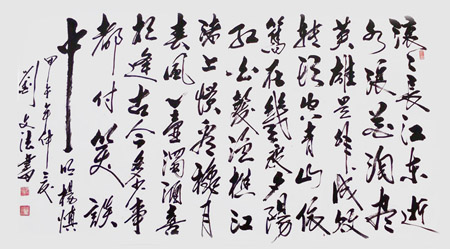 滚滚長江东逝
水浪花淘尽
英雄是非成敗
转頭空青山依
舊在幾度夕陽
红白髮渔樵江
渚上惯看秋月
春風一壶濁酒喜
相逢古今多少事
都付笑談
中
明楊慎
甲午年仲夏
劉文法書